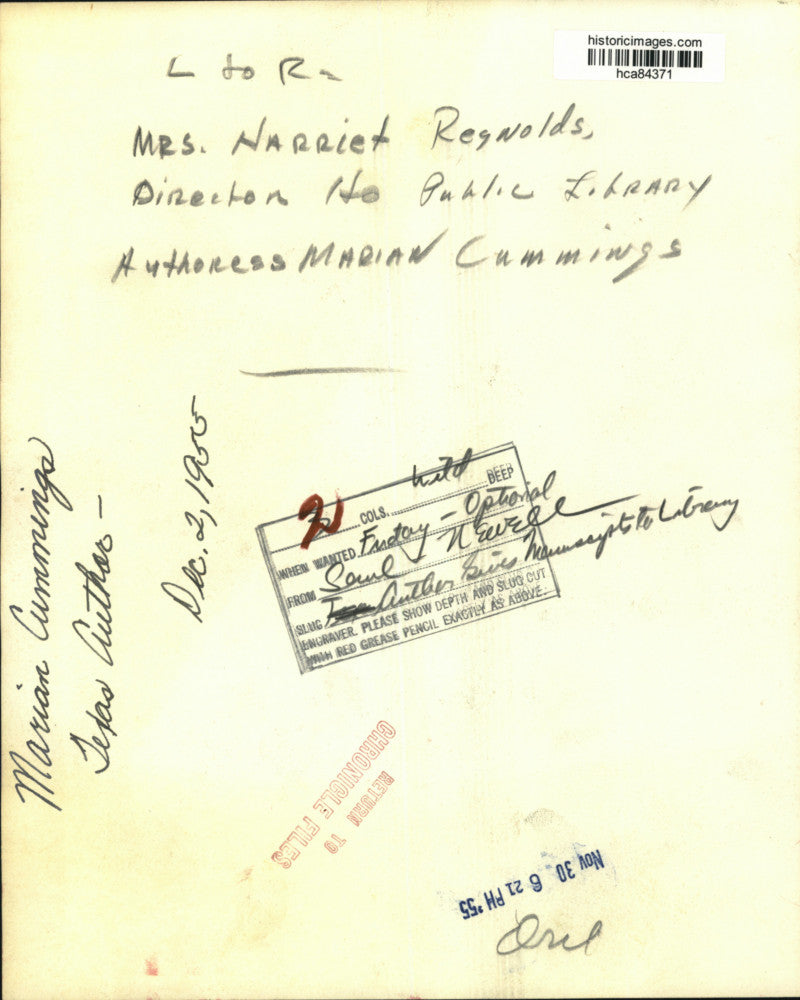 historicimages.com
hca84371
L to R =
MRS. HARRIET Reynolds,
Director Ho Public Library
Authoress MARIAN Cummings
Marian Cummings
Texas Author -
Dec. 2, 1955
2 COLS. DEEP
WHEN WANTED Friday - Optional
FROM Newell
SLUG Author Gives Manuscripts to Library
ENGRAVER. PLEASE SHOW DEPTH AND SLUG CUT
WITH RED GREASE PENCIL EXACTLY AS ABOVE.
RETURN TO
CHRONICLE FILES
Nov 30 6 21 PM '55